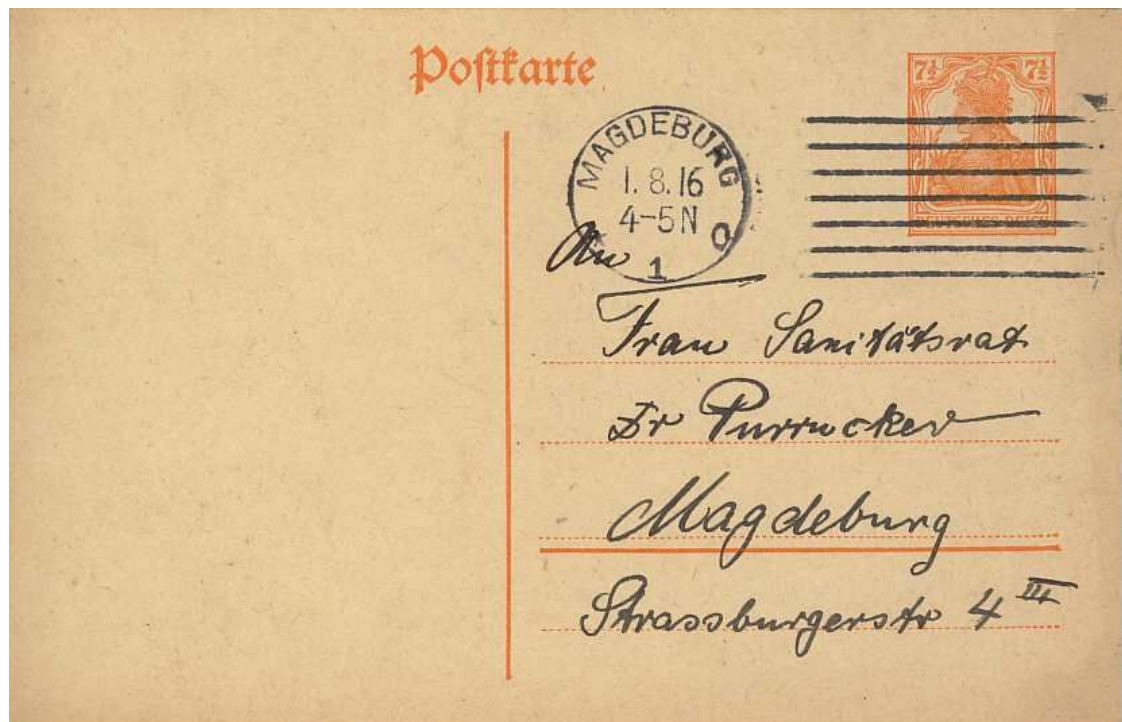 Postkarte
7½ 7½
DEUTSCHES REICH
MAGDEBURG
1.8.16
4-5N
* 1 O
An
Frau Sanitätsrat
Dr Purrucker
Magdeburg
Strassburgerstr 4 III